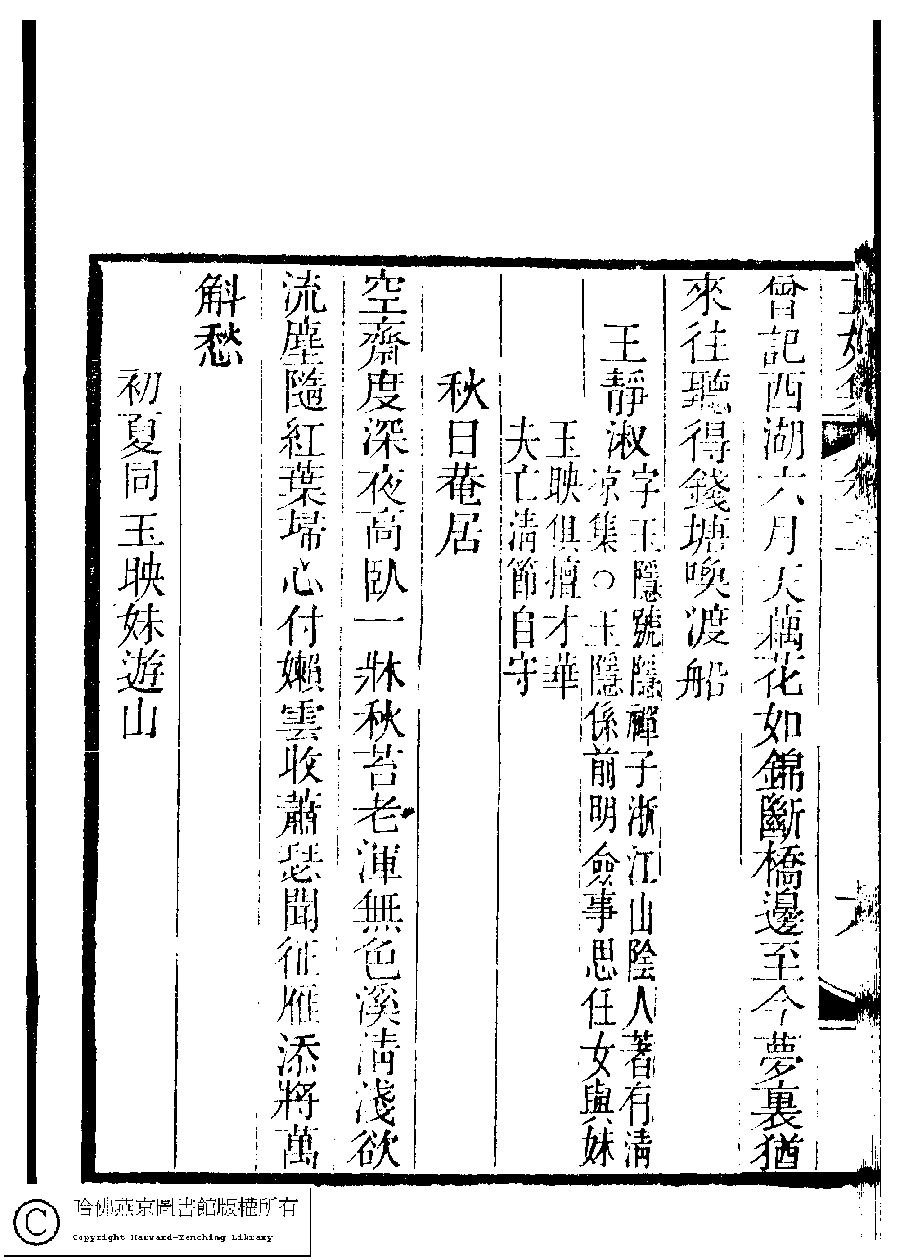 曾記西湖六月天藕花如錦斷橋邊至今夢裏猶
來往聽得錢塘喚渡船
王靜淑字玉隱號隱禪子浙江山陰人著有清
凉集○玉隱係前明僉事思任女與妹
玉映俱擅才華
夫亡清節自守
秋日菴居
空齋度深夜高臥一牀秋苔老渾無色溪清淺欲
流塵隨紅葉埽心付嬾雲收蕭瑟聞征雁添將萬
斛愁
初夏同玉映妹遊山
哈佛燕京圖書館版權所有
Copyright Harvard-Yenching Library